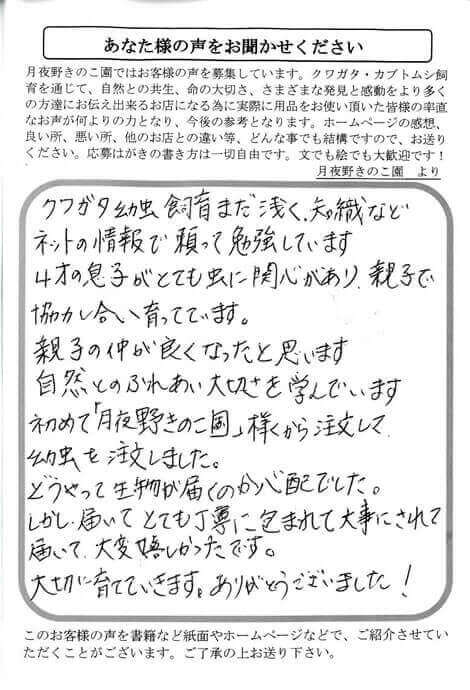 あなた様の声をお聞かせください
月夜野きのこ園ではお客様の声を募集しています。クワガタ・カブトムシ飼
育を通じて、自然との共生、命の大切さ、さまざまな発見と感動をより多く
の方達にお伝え出来るお店になる為に実際に用品をお使い頂いた皆様の率直
なお声が何よりの力となり、今後の参考となります。ホームページの感想、
良い所、悪い所、他のお店との違い等、どんな事でも結構ですので、お送り
ください。応募はがきの書き方は一切自由です。文でも絵でも大歓迎です！
月夜野きのこ園　より
クワガタ幼虫飼育まだ浅く、知識など
ネットの情報で頼って勉強しています
4才の息子がとても虫に関心があり、親子で
協力し合い育ってています。
親子の仲が良くなったと思います
自然とのふれあい大切さを学んでいます
初めて「月夜野きのこ園」様くから注文して
幼虫を注文しました。
どうやって生物が届くのか心配でした。
しかし届いてとても丁寧に包まれて大事にされて
届いて、大変嬉しかったです。
大切に育てていきます。ありがとうございました！
このお客様の声を書籍など紙面やホームページなどで、ご紹介させてい
ただくことがございます。ご了承の上お送り下さい。